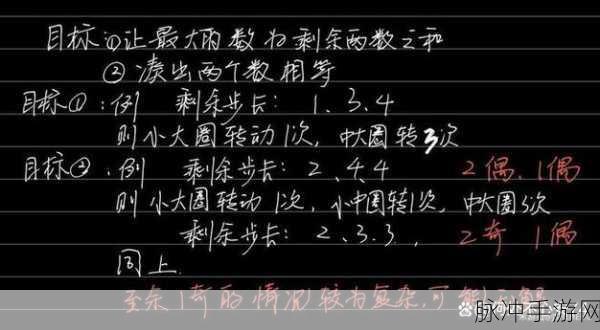 目标:①让最大的数为剩余两数之和
②凑出两个数相等
目标①:例 剩余步长: 1、3、4
则小大圈转动1次, 中大圈转3次
目标②:例 剩余步长: 2、4、4 2偶、1偶
则小大圈转动1次, 小中圈转1次, 中大圈3次
剩余步长: 2、3、3, 2奇 1偶
同上.
至余1奇的情况较为复杂,可能
脉冲手游网